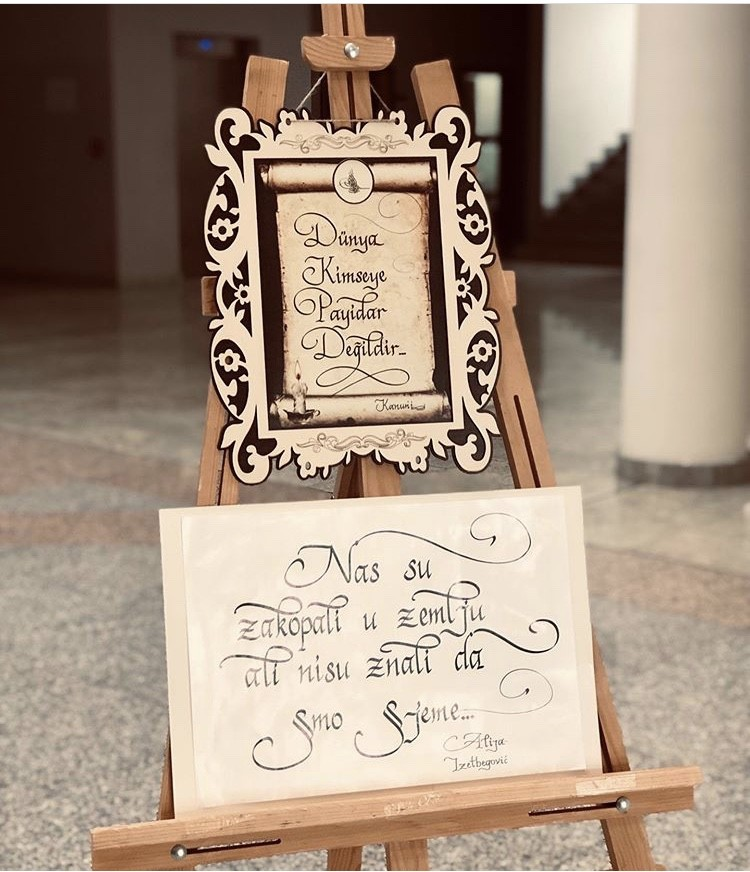 Dünya
Kimseye
Payidar
Değildir...
Kanuni
Nas su
zakopali u zemlju
ali nisu znali da
smo sjeme...
Alija
Izetbegović